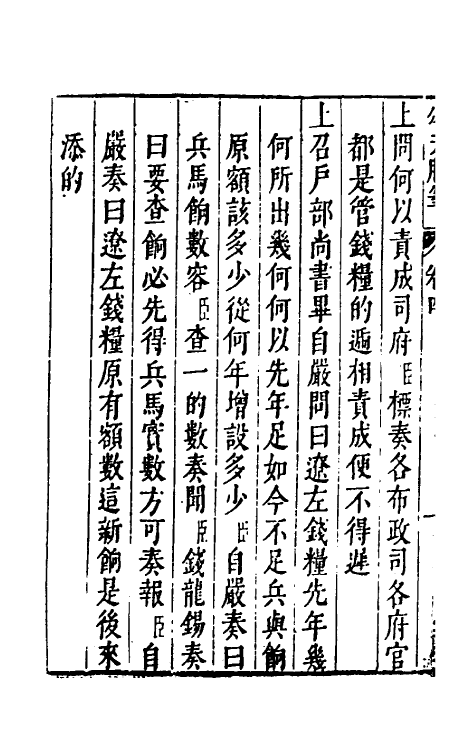 上問何以責成司府臣標奏各布政司各府官
都是管錢糧的遞相責成便不得遲
上召戶部尚書畢自嚴問曰遼左錢糧先年幾
何所出幾何何以先年足如今不足兵與餉
原額該多少從何年增設多少臣自嚴奏曰
兵馬餉數容臣查一的數奏聞臣錢龍錫奏
曰要查餉必先得兵馬實數方可奏報臣自
嚴奏曰遼左錢糧原有額數這新餉是後來
添的